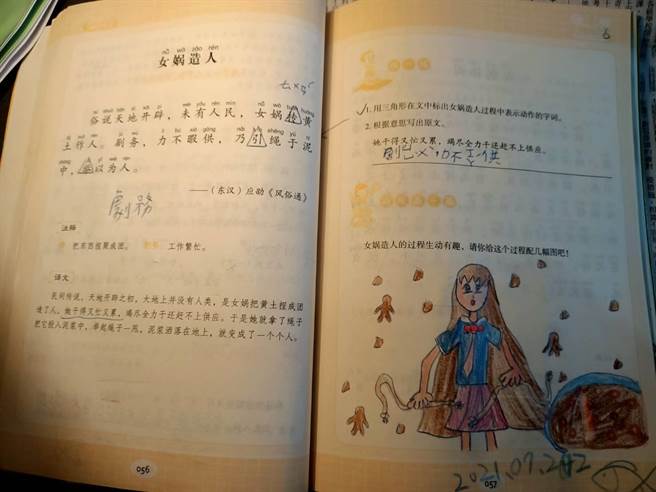 nǚ wā zào rén
女娲造人
俗说天地开辟，未有人民，女娲抟黄
土作人。剧务，力不暇供，乃引绳于泥
中，举以为人。
——（东汉）应劭《风俗通》
劇務
注释
把东西捏聚成团。 工作繁忙。
译文
民间传说，天地开辟之初，大地上并没有人类，是女娲把黄土捏成团
造了人。她干得又忙又累，竭尽全力干还赶不上供应。于是她就拿了绳子
把它投入泥浆中，举起绳子一甩，泥浆洒落在地上，就变成了一个个人。
056
练一练
1. 用三角形在文中标出女娲造人过程中表示动作的字词。
2. 根据意思写出原文。
她干得又忙又累，竭尽全力干还赶不上供应。
女娲造人的过程生动有趣，请你给这个过程配几幅图吧！
057